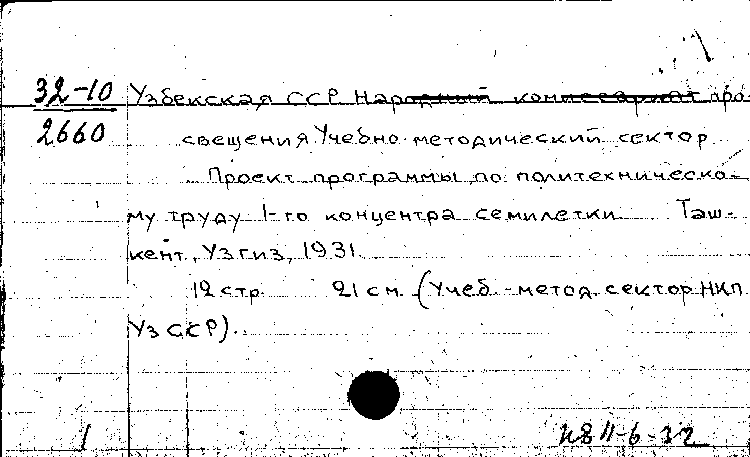 32-10 Узбекская ССР. Народный комиссариат про-
2660 свещения. Учебно-методический сектор
Проект программы по политехническо-
му труду 1-го концентра семилетки Таш-
кент, Узгиз, 1931.
12 стр. 21 см. (Учеб.-метод. сектор НКП
УзССР).
1